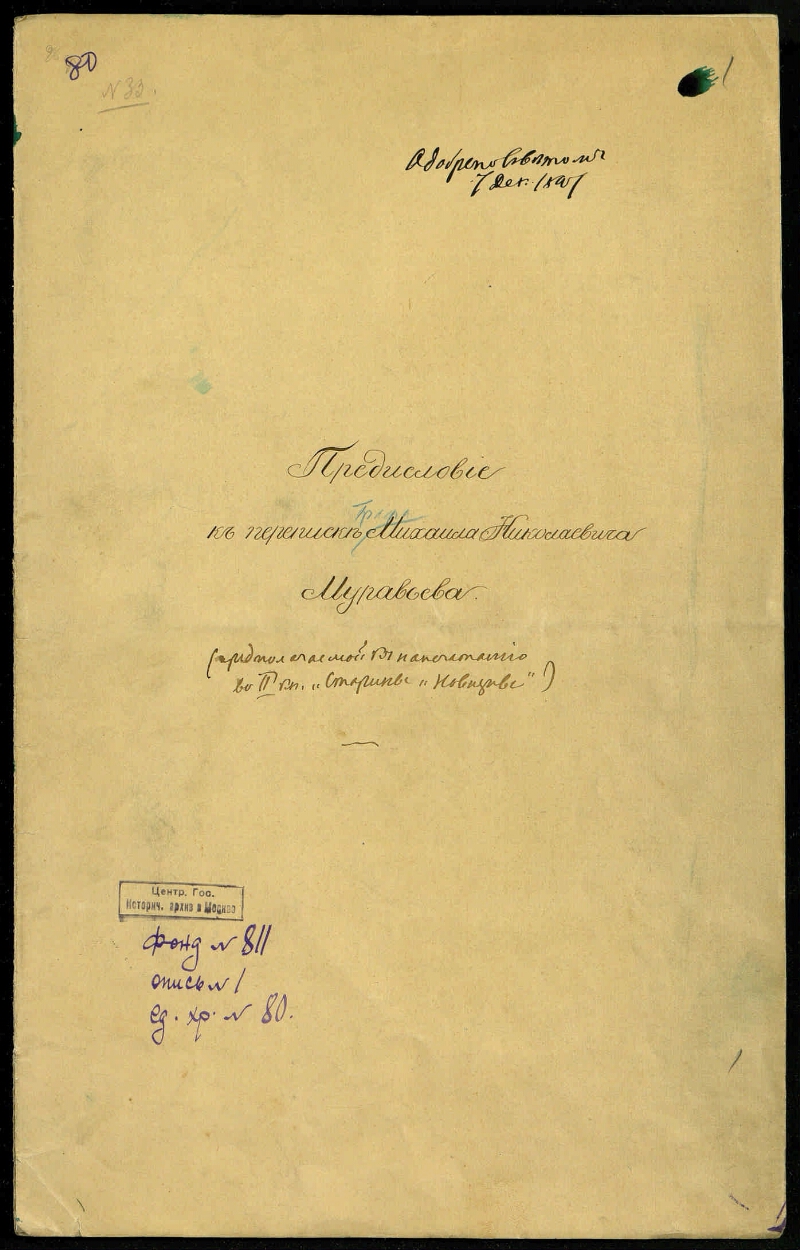 80
N 33.
7 Дек. 1897
Предисловіе
къ перепискѣ Графа Михаила Николаевича
Муравьева.
(предполагаемой къ напечатанію
во II кн. „Старины и Новизны")
Центр. Гос.
Историч. архив в Москве
фонд N 811
опись N 1
ед. хр. N 80.